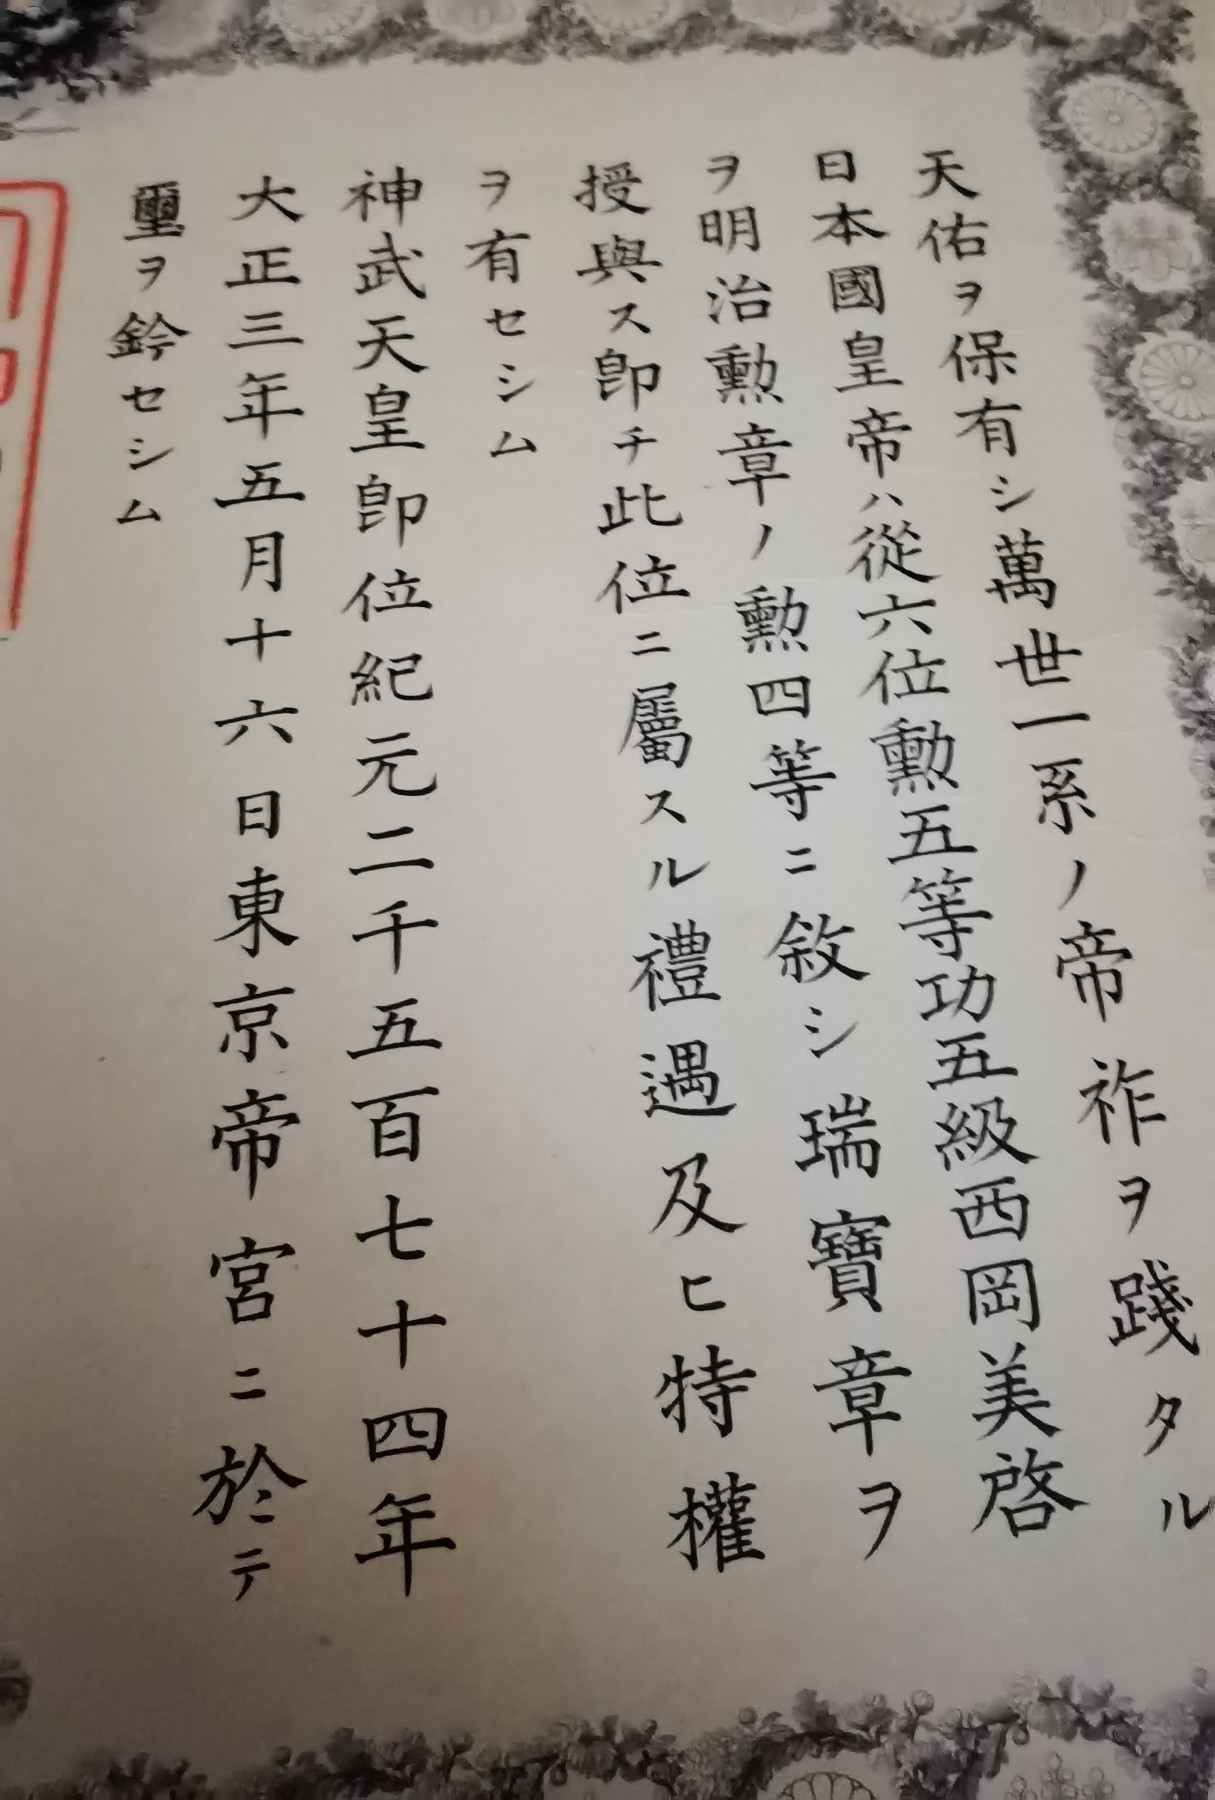 天佑ヲ保有シ萬世一系ノ帝祚ヲ踐タル
日本國皇帝ハ從六位勲五等功五級西岡美啓
ヲ明治勲章ノ勲四等ニ敘シ瑞寶章ヲ
授與ス卽チ此位ニ屬スル禮遇及ヒ特權
ヲ有セシム
神武天皇卽位紀元二千五百七十四年
大正三年五月十六日東京帝宮ニ於テ
璽ヲ鈐セシム